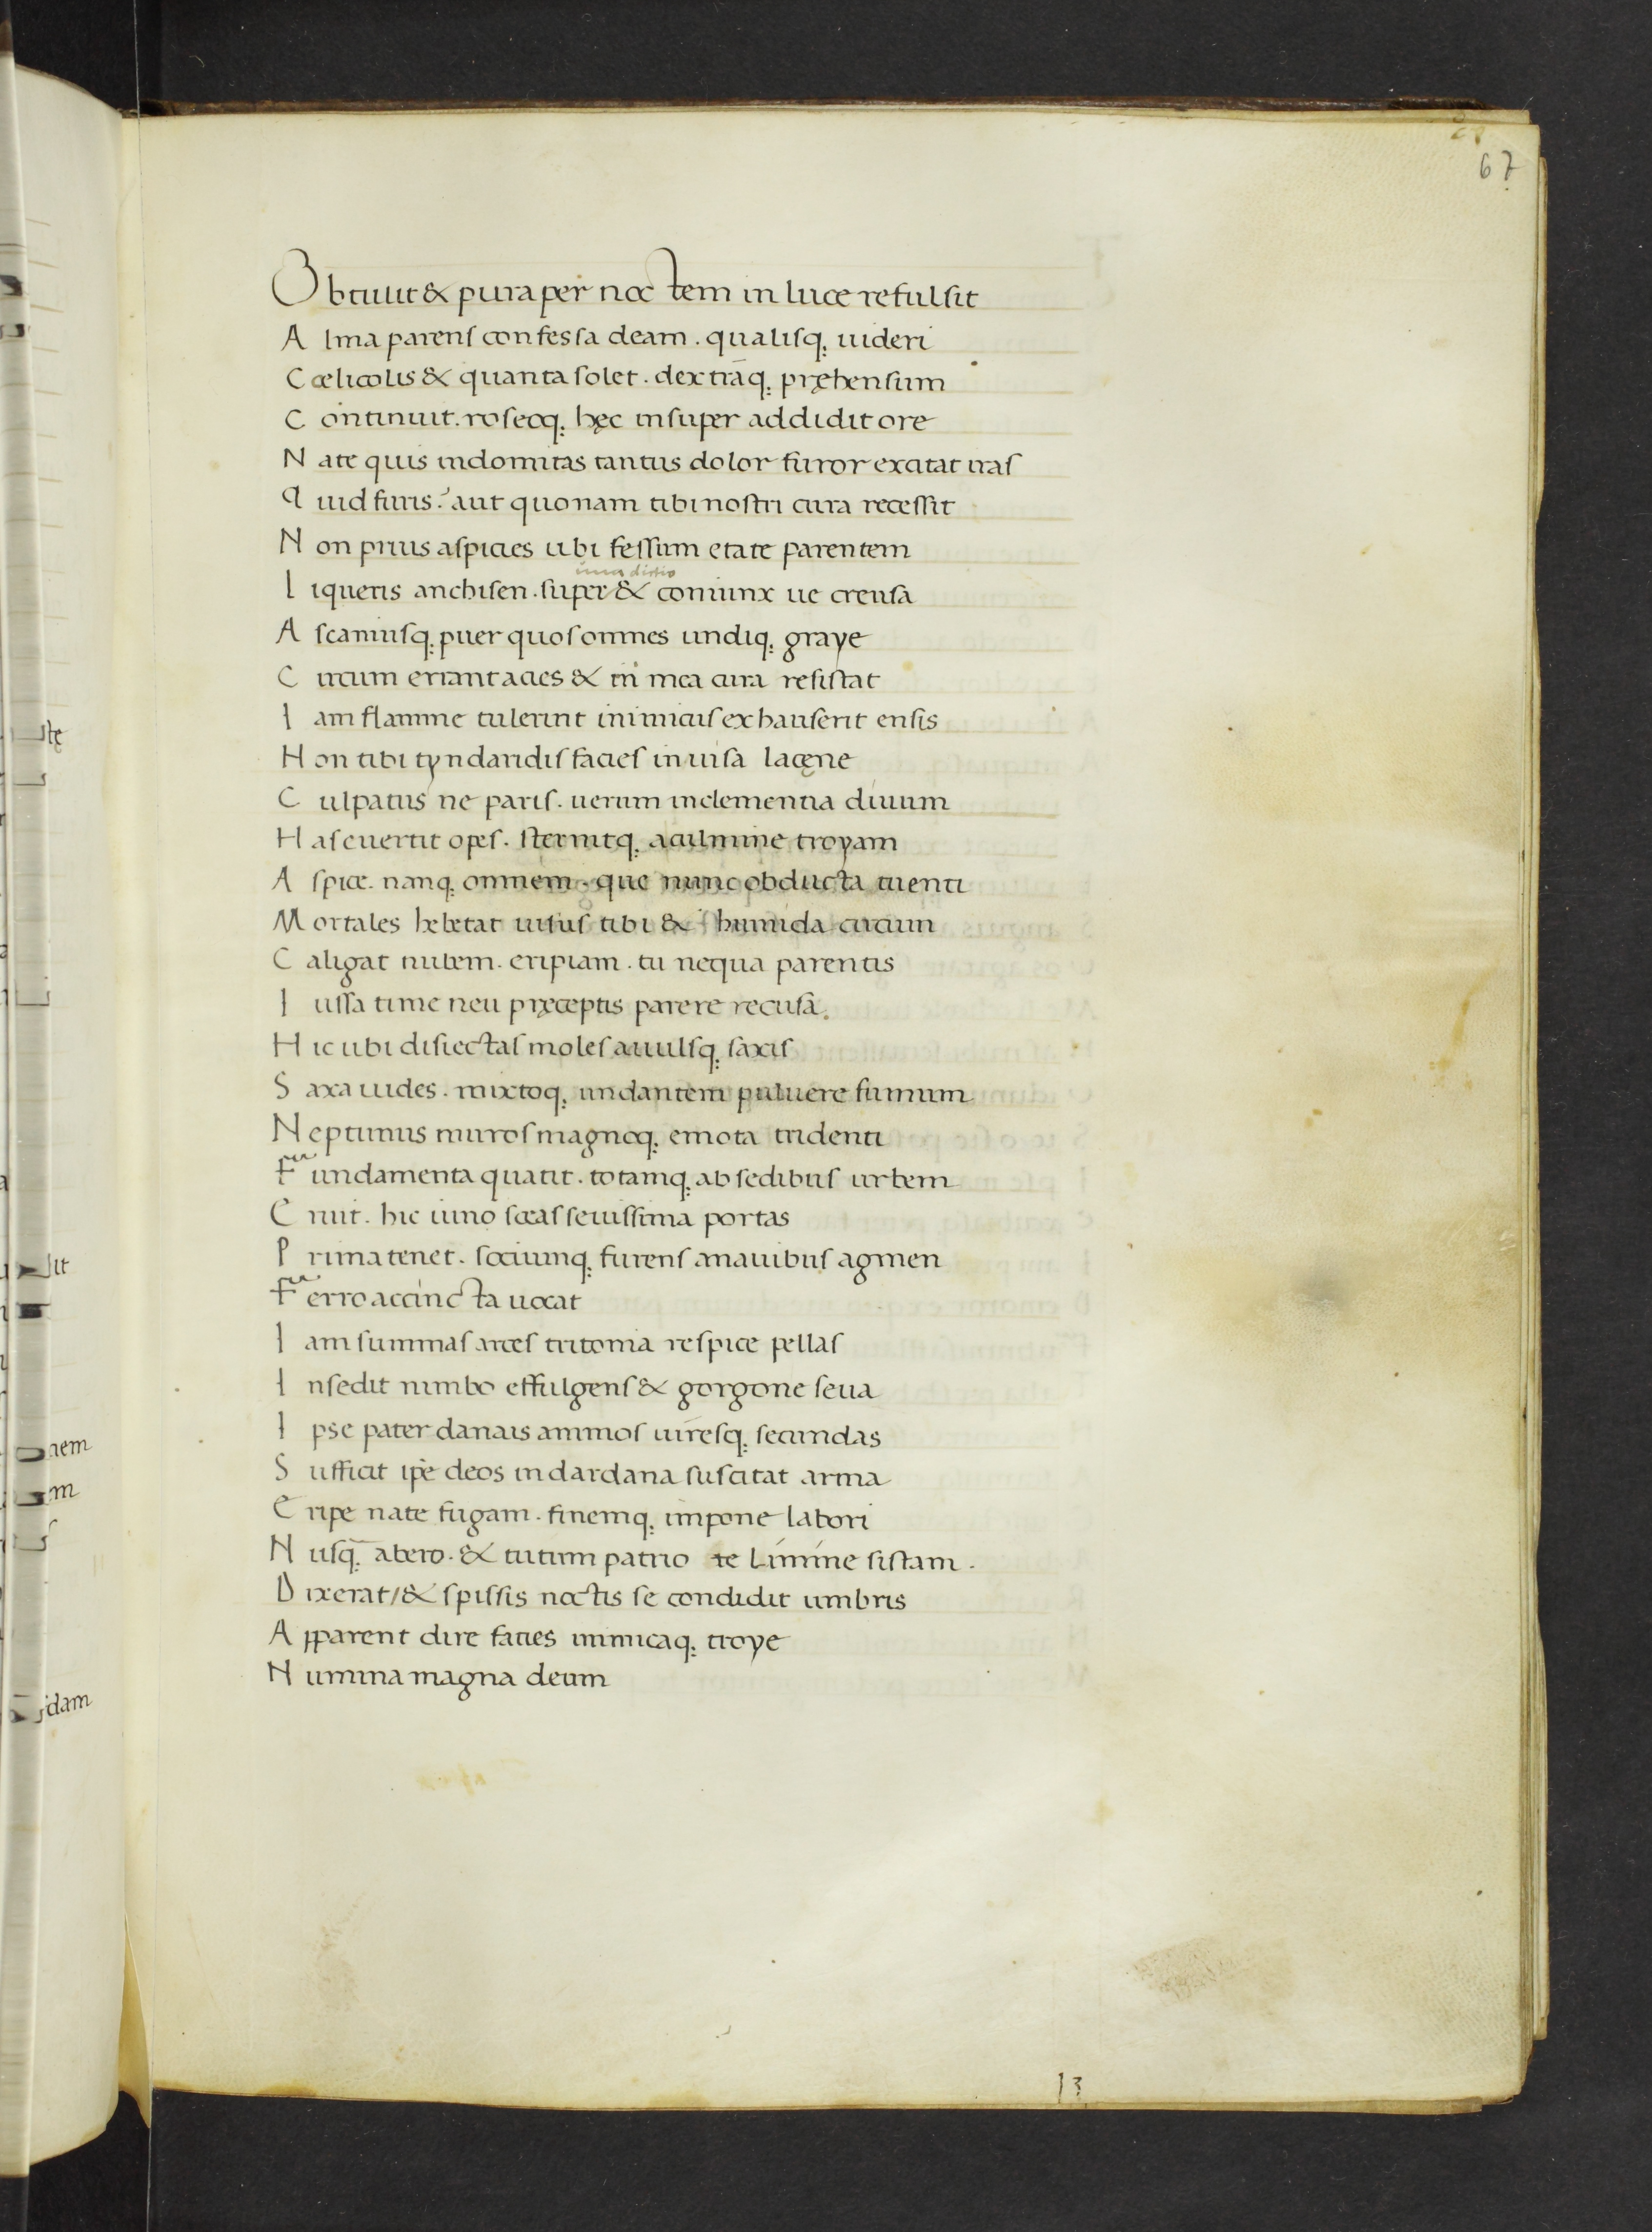 67
Obtulit & pura per noctem in luce refulsit
Alma parens confessa deam. qualisq; uideri
Cœlicolis & quanta solet. dextrāq; pręhensum
Continuit. roseoq; hęc insuper addidit ore
Nate quis indomitas tantus dolor furor excitat iras
Quid furis? aut quonam tibi nostri cura recessit
Non prius aspicies ubi fessum etate parentem
una dictio
Liqueris anchisen. super & coniunx ue creusa
Ascaniusq; puer quos omnes undiq; graye
Circum errant acies & ni mea cura resistat
Iam flamme tulerint inimicus exhauserit ensis
Non tibi tyndaridis facies inuisa lacęne
Culpatus ne paris. uerum inclementia diuum
Has euertit opes. sternitq; a culmine troyam
Aspice. nanq; omnem. que nunc obducta tuenti
Mortales hebetat uisus tibi & humida circum
Caligat nubem. eripiam. tu nequa parentis
Iussa time neu pręceptis parere recusa.
Hic ubi disiectas moles auulsq; saxis
Saxa uides. mixtoq; undantem puluere fumum
Neptunus muros magnoq; emota tridenti
Fundamenta quatit. totamq; ab sedibus urbem
Eruit. hic iuno scęas seuissima portas
Prima tenet. sociumq; furens anauibus agmen
Ferro accincta uocat
Iam summas arces tritonia respice pellas
Insedit nimbo effulgens & gorgone seua
Ipse pater danais animos uiresq; secundas
Sufficit ipse deos in dardana suscitat arma
Eripe nate fugam. finemq; impone labori
Nusq̄; abero. & tutum patrio te limine sistam.
Dixerat / & spissis noctis se condidit umbris
Apparent dire facies inimicaq; troye
Numina magna deum
13
tę
it
nem
m
dam